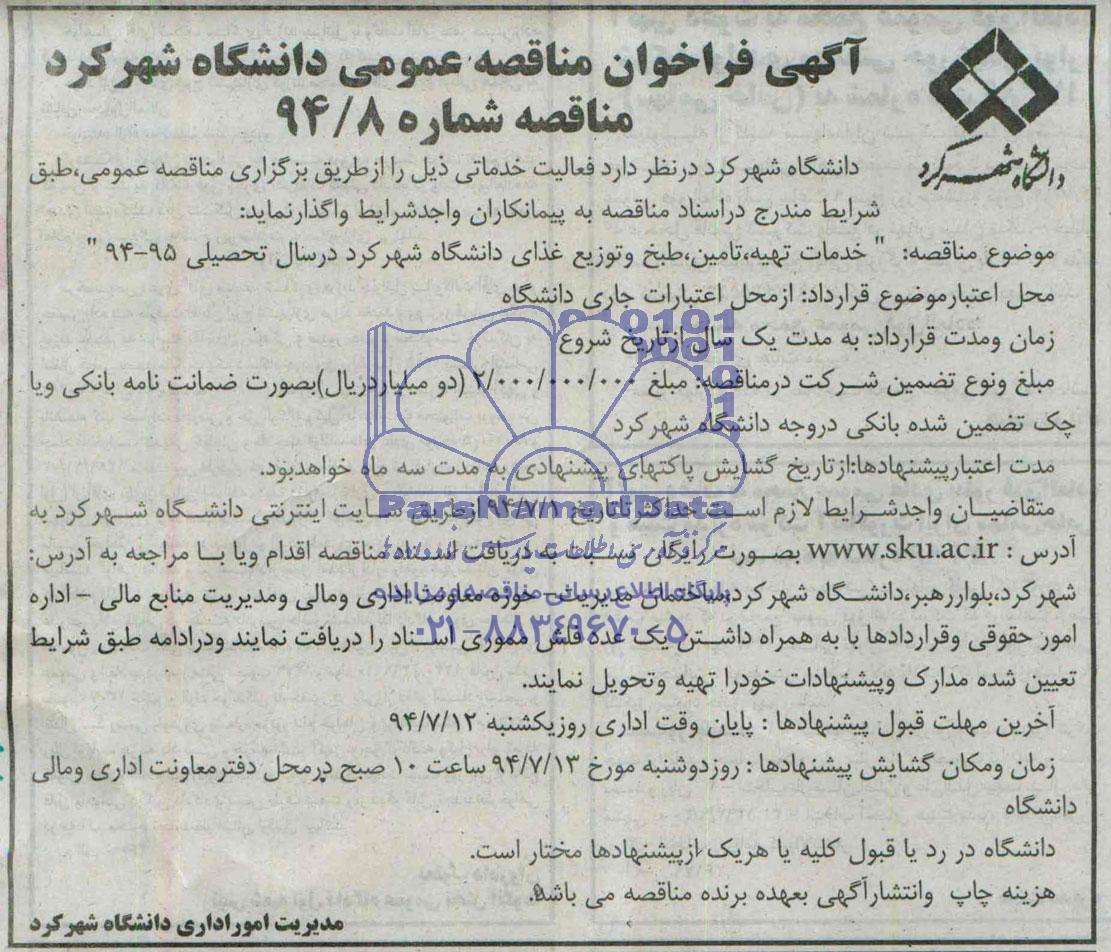 آگهی فراخوان مناقصه عمومی دانشگاه شهرکرد
مناقصه شماره ۹۴/۸
دانشگاه شهرکرد
دانشگاه شهرکرد درنظر دارد فعالیت خدماتی ذیل را ازطریق برگزاری مناقصه عمومی،طبق
شرایط مندرج دراسناد مناقصه به پیمانکاران واجدشرایط واگذارنماید:
موضوع مناقصه: " خدمات تهیه،تامین،طبخ وتوزیع غذای دانشگاه شهرکرد درسال تحصیلی ۹۵-۹۴ "
محل اعتبارموضوع قرارداد: ازمحل اعتبارات جاری دانشگاه
زمان ومدت قرارداد: به مدت یک سال ازتاریخ شروع
مبلغ ونوع تضمین شرکت درمناقصه: مبلغ ۲/۰۰۰/۰۰۰/۰۰۰ (دو میلیاردریال)بصورت ضمانت نامه بانکی ویا
چک تضمین شده بانکی دروجه دانشگاه شهرکرد
مدت اعتبارپیشنهادها:ازتاریخ گشایش پاکتهای پیشنهادی به مدت سه ماه خواهدبود.
ParsNamadData
متقاضیان واجدشرایط لازم است حداکثر تاتاریخ ۹۴/۷/۱ ازطریق سایت اینترنتی دانشگاه شهرکرد به
آدرس : www.sku.ac.ir بصورت رایگان نسبت به دریافت اسناد مناقصه اقدام ویا با مراجعه به آدرس:
پایگاه اطلاع رسانی مناقصه و مزایده
شهرکرد،بلواررهبر،دانشگاه شهرکرد،ساختمان مدیریت- حوزه معاونت اداری ومالی ومدیریت منابع مالی - اداره
۰۲۱-۸۸۳۴۹۶۷۰-۵
امور حقوقی وقراردادها با به همراه داشتن یک عدد فلش مموری اسناد را دریافت نمایند ودرادامه طبق شرایط
تعیین شده مدارک وپیشنهادات خودرا تهیه وتحویل نمایند.
آخرین مهلت قبول پیشنهادها : پایان وقت اداری روزیکشنبه ۹۴/۷/۱۲
زمان ومکان گشایش پیشنهادها : روزدوشنبه مورخ ۹۴/۷/۱۳ ساعت ۱۰ صبح درمحل دفترمعاونت اداری ومالی
دانشگاه
دانشگاه در رد یا قبول کلیه یا هریک ازپیشنهادها مختار است.
هزینه چاپ وانتشارآگهی بعهده برنده مناقصه می باشد.
مدیریت اموراداری دانشگاه شهرکرد